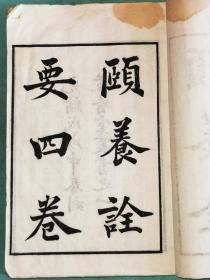 頤養詮
要四卷